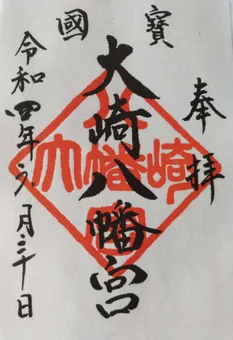 國寶
奉拝
大崎八幡宮
令和四年六月三十日
大崎八幡宮